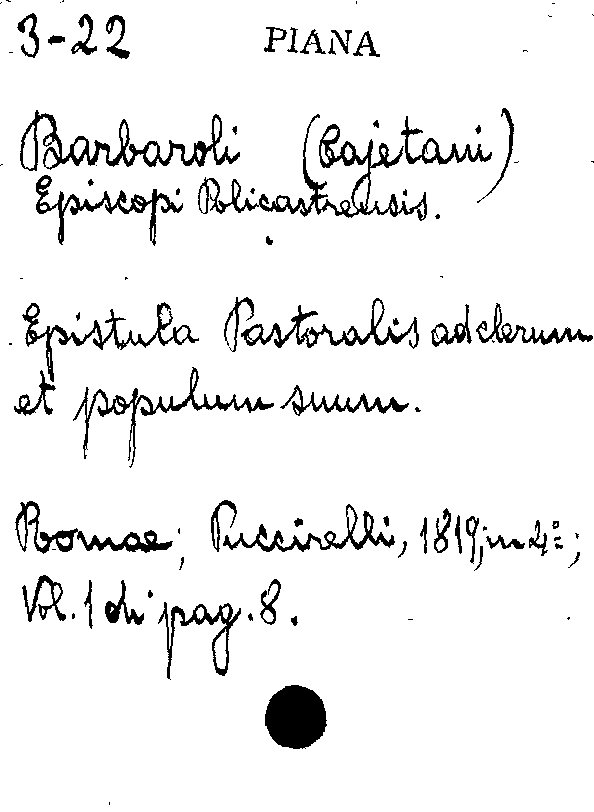 3-22 PIANA
Barbaroli (Cajetani)
Episcopi Policastrensis.
Epistula Pastoralis ad clerum
et populum suum.
Romae; Puccirelli, 1819; in 4º;
Vol. 1 di pag. 8.